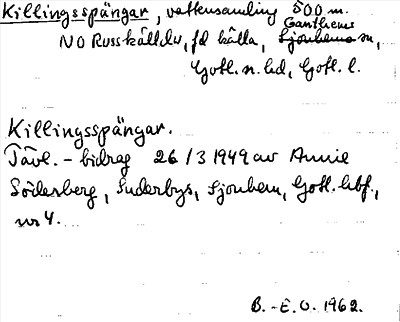 Killingsspängar, vattensamling 500 m.
NO Russkälldu, fd källa, Ganthems Sjonhems sn,
Gotl. n. hd, Gotl. l.
Killingsspängar.
Tävl. - bidrag 26/3 1949 av Annie
Söderberg, Suderbys, Sjonhem, Gotl. hbf.,
nr 4.
B. - E. O. 1962.